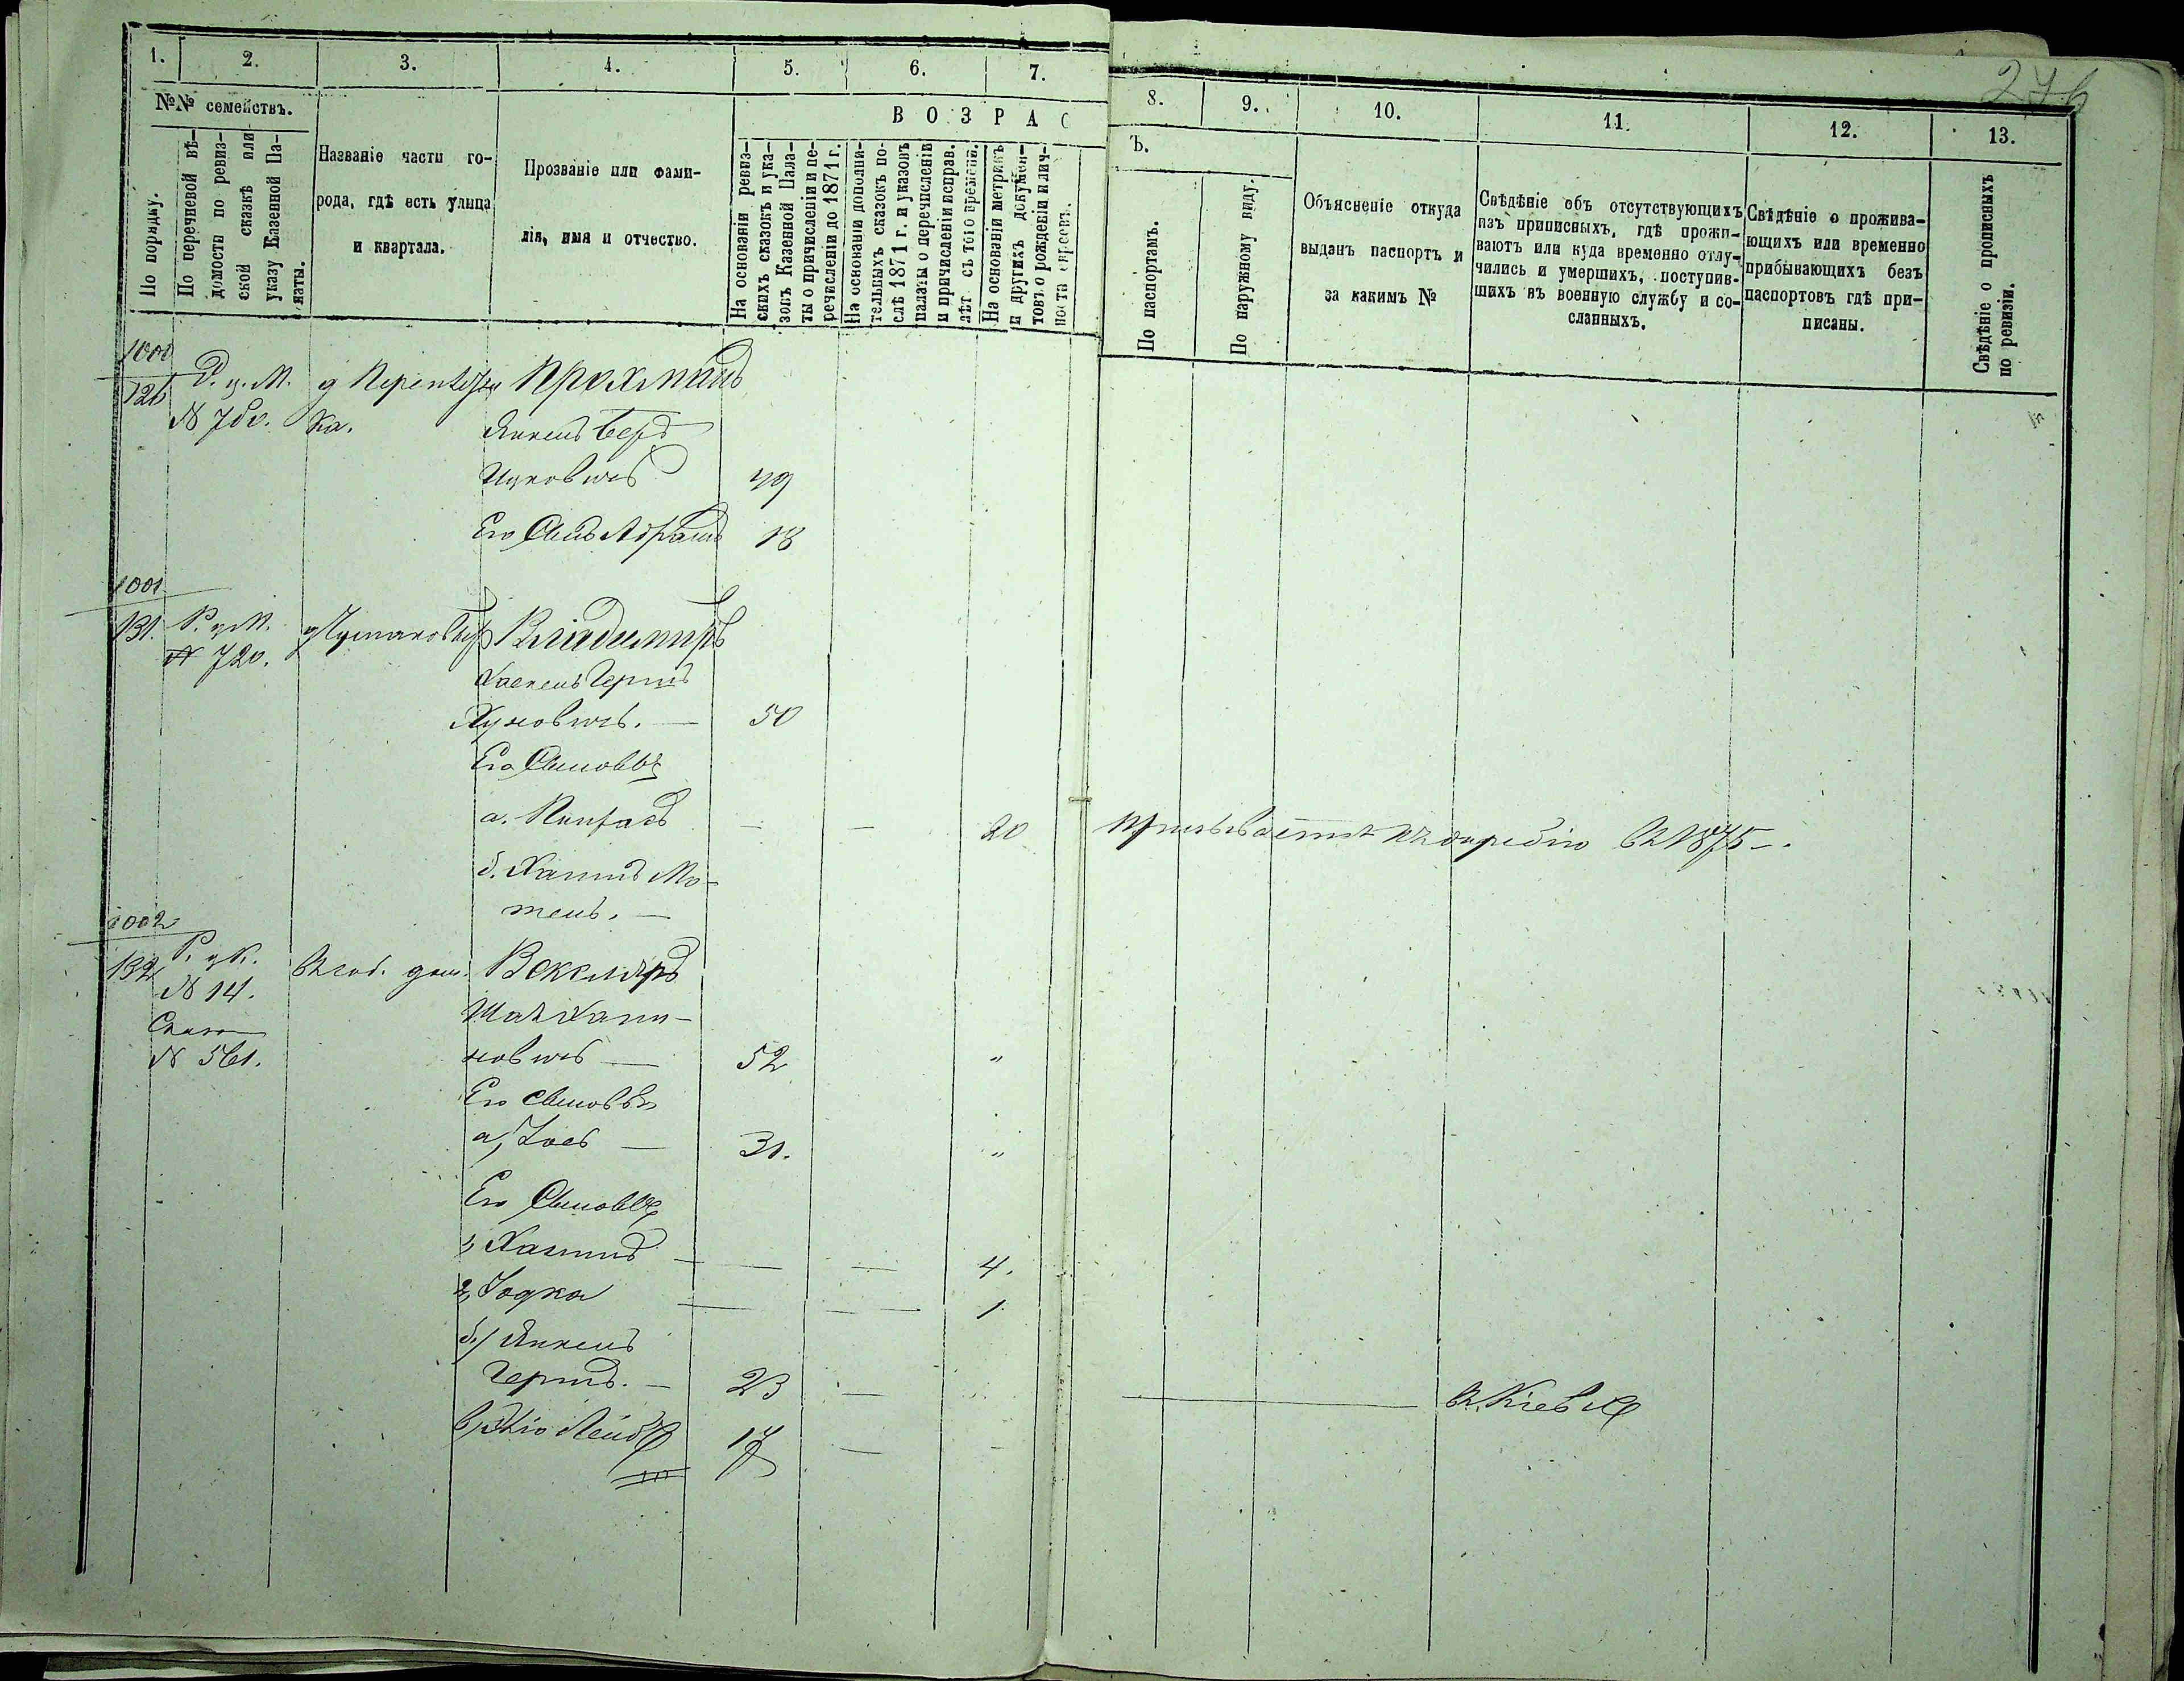 276
1. 2. 3. 4. 5. 6. 7. 8. 9. 10. 11. 12. 13.
№№ семействъ.
По порядку.
По перечневой вѣ-
домости по ревиз-
ской сказкѣ или
указу Казенной Па-
латы.
Названіе части го-
рода, гдѣ есть улица
и квартала.
Прозваніе или фами-
лія, имя и отчество.
ВОЗРАС
Ъ.
На основаніи ревиз-
скихъ сказокъ и ука-
зовъ Казенной Пала-
ты о причисленіи и пе-
речисленіи до 1871 г.
На основаніи дополни-
тельныхъ сказокъ по-
слѣ 1871 г. и указовъ
палаты о перечисленіи
и причисленіи исправ.
лѣт съ того времени.
На основаніи метрикъ
и другихъ докумен-
товъ о рожденіи и лич-
ноcта опросовъ.
По паспортамъ.
По наружному виду.
Объясненіе откуда
выданъ паспортъ и
за какимъ №
Свѣдѣніе объ отсутствующихъ
изъ приписныхъ, гдѣ прожи-
ваютъ или куда временно отлу-
чились и умершихъ, поступив-
шихъ въ военную службу и со-
сланныхъ.
Свѣдѣніе о прожива-
ющихъ или временно
прибывающихъ безъ
паспортовъ гдѣ при-
писаны.
Свѣдѣніе о прописныхъ
по ревизіи.
1000
Р. у. М.
ка.
Янкель Беръ
Ицковичъ 49
Его Сынъ Абрамъ 18
1001
131. Р. у М. Владимиръ
№ 720.
Хаскель Гершъ
50
Его Сыновья
а. Пинхасъ — — 20 призывается къ жеребію въ 1875 —.
б. Хаимъ Мо-
тель. —
1002
132 Р. у К. Векслеръ
№ 14.
Сказк
№ 561.
Хаи-
мовичъ — 52 "
Его сыновья
а, Іосъ — 31. "
Его Сыновья
1, Хаимъ — — — 4.
2, Іодка — — — 1
б/ Янкель
Гершъ. — 23 — — въ Кіевѣ
в, Лейбъ 17 —